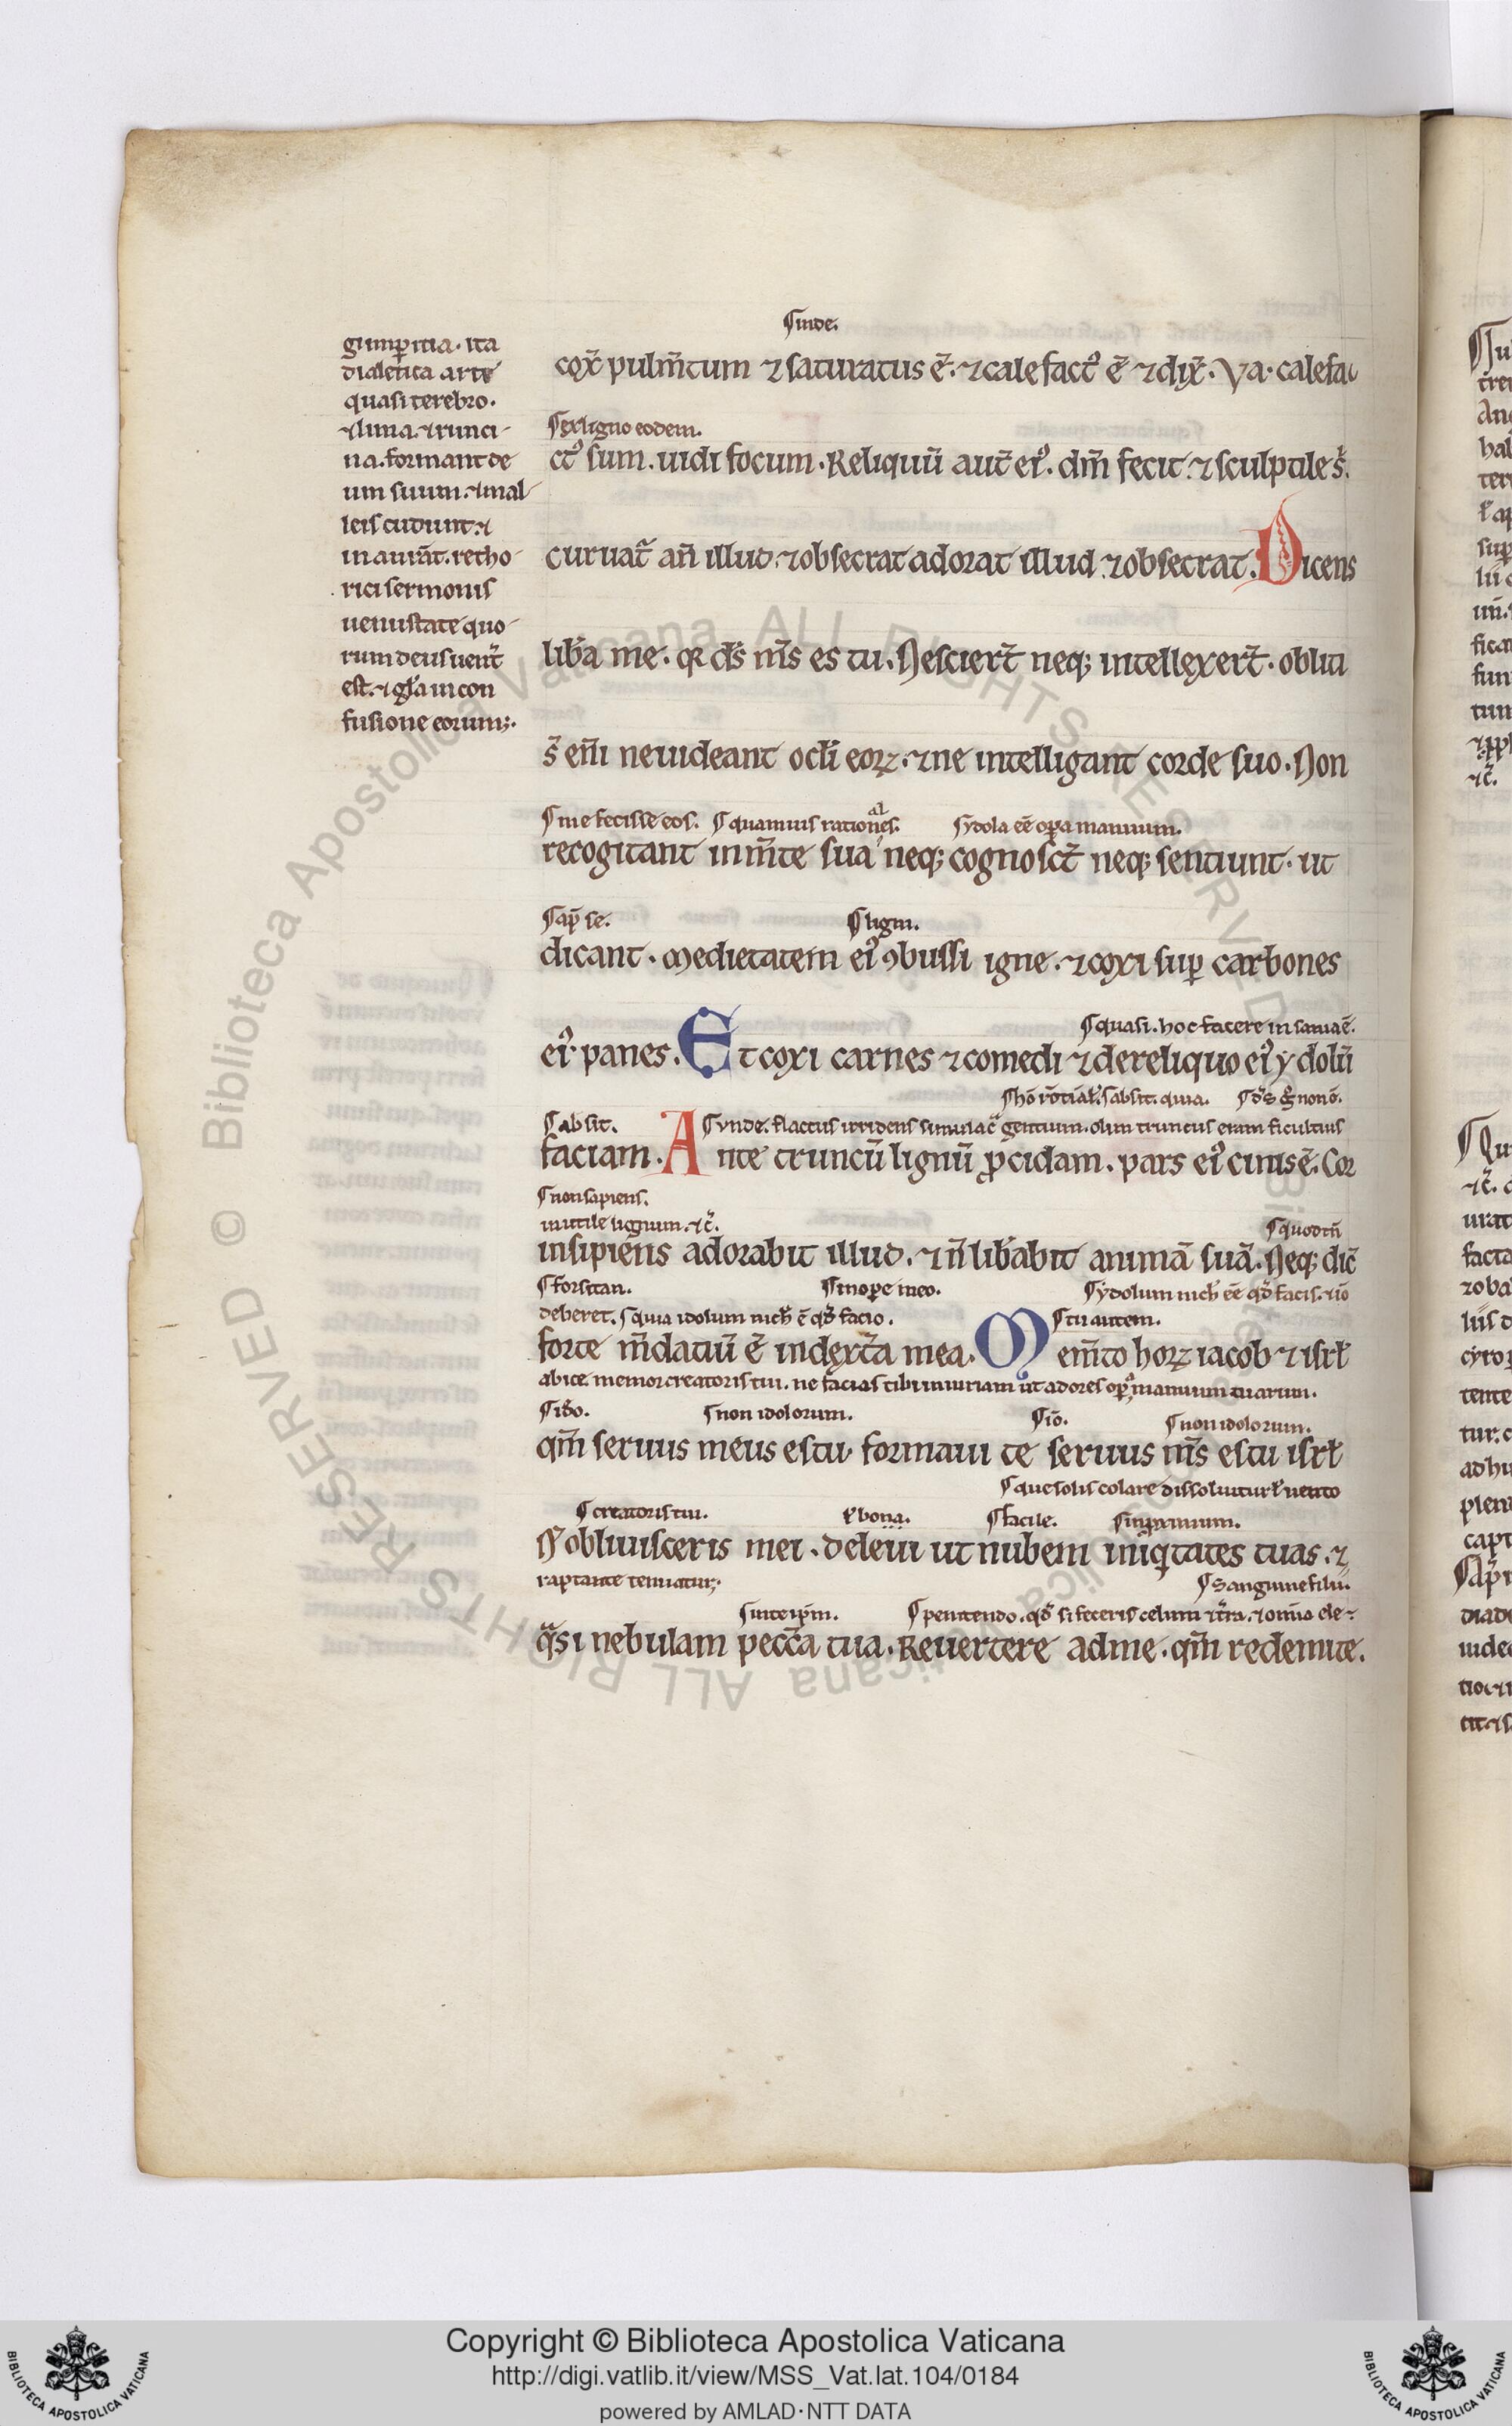 ¶ inde.
gumꝑitia. ita
dialetica arte
quasi terebro.
⁊ luna. ⁊ runci-
na. formant de
um suum. ⁊ mal-
leis cudunt. ⁊
in aurāt. retho-
rici sermonis
uenustate quo-
rum deus uent̄
est. ⁊ gl̄a in con
fusione eorum;.
cox̄ pulm̄tum ⁊ saturatus ē. ⁊ calefactꝰ ē ⁊ dix̄. Va. calefa
¶ ex ligno eodem.
ctꝰ sum. uidi focum. Reliquū aut̄ eiꝰ. dm̄ fecit. ⁊ sculptile s̄.
curuat̄ an̄ illud. ⁊ obsecrat adorat illud. ⁊ obsecrat. Dicens
lib̄a me. qr ds̄ m̄s es tu. Nesciert̄ neq; intellexert̄. obliti
s̄ eni̅ ne uideant ocl̄i eoꝝ. ⁊ ne intelligant corde suo. Non
¶ me fecisse eos. ¶ quamuis rationales. ¶ ydola eē oꝑa manuum.
recogitant in m̄te sua neq; cognosct̄ neq; sentiunt. ut
¶ ap̄ se. ¶ ligni.
dicant. Medietatem eiꝰ ꝯbussi igne. ⁊ coxi suꝑ carbones
¶ quasi. hoc facere insania ē.
eiꝰ panes. Et coxi carnes ⁊ comedi ⁊ de reliquo eiꝰ ydolū
¶ absit. ¶ ynde. flaccus irridens simulac̄ gentium. olim truncus eram ficulnus
faciam. Ante truncū lignū ꝓcidam. pars eiꝰ cinis ē. Cor
¶ non sapiens.
inutile lignum. ⁊c̄. ¶ quod tn̄
insipiens adorabit illud. ⁊ n̄ lib̄abit animā suā. Neq; dic̄
¶ forsitan. ¶ in oꝑe meo. ¶ ydolum nich̄ eē qd̄ facis. ⁊ iō
deberet. ¶ quia idolum nich̄ ē qd̄ facio. ¶ tu autem.
forte m̄datiū ē in dext̄a mea. Mem̄to hoꝝ iacob ⁊ isrl̄
abice. memor creatoris tui. ne facias tibi iniuriam ut adores opꝰ manuum tuarum.
¶ ido. ¶ non idolorum. ¶ iō. ¶ non idolorum.
qm̄ seruus meus es tu. formaui te seruus m̄s es tu isrl̄
¶ que solis calore dissoluitur ł uento
¶ creatoris tui. ł bona. ¶ facile.
N obliuisceris mei. deleui ut nubem iniqitates tuas. ⁊
raptante tenuatur;. ¶ sanguine filii.
¶ in te ip̄m. ¶ penitendo. qd̄ si feceris celum ⁊ t̄ra. ⁊ omnia ele-
qͣsi nebulam pecc̄a tua. Reuertere ad me. qm̄ redemi te.
Copyright © Biblioteca Apostolica Vaticana
http://digi.vatlib.it/view/MSS_Vat.lat.104/0184
powered by AMLAD·NTT DATA
BIBLIOTECA APOSTOLICA VATICANA
BIBLIOTECA APOSTOLICA VATICANA